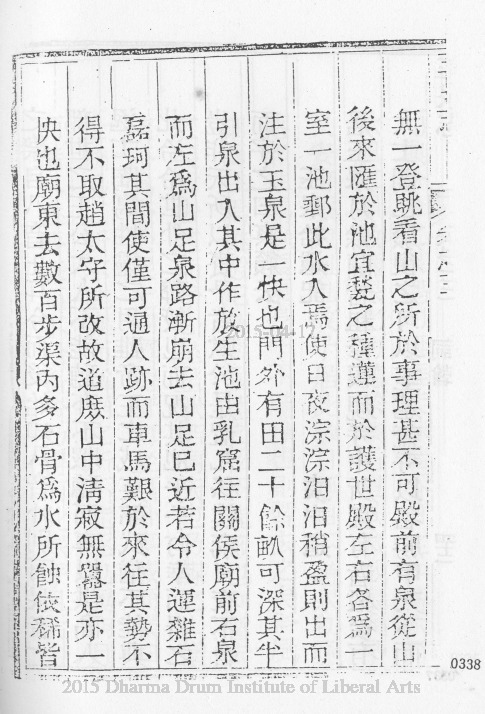 無一登眺看山之所於事理甚不可殿前有泉從山
後來匯於池宜甃之種蓮而於護世殿左右各爲一
室一池郵此水入焉使日夜淙淙汨汨稍盈則出而
注於玉泉是一快也門外有田二十餘畝可深其半
引泉出入其中作放生池由乳窟往關侯廟前石泉
而左爲山足泉路漸崩去山足已近若令人運雜石
磊砢其間使僅可通人跡而車馬艱於來往其勢不
得不取趙太守所改故道庶山中清寂無囂是亦一
快也廟東去數百步渠內多石骨爲水所蝕依稀皆
0338
2015-04-17
2015 Dharma Drum Institute of Liberal Arts